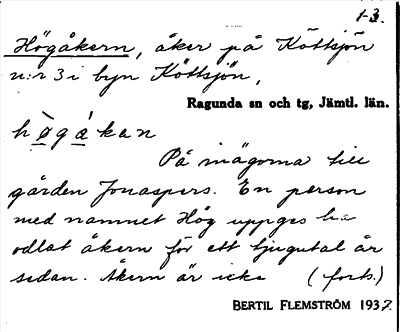 1-3.
Högåkern, åker på Köttsjön
n:r 3 i byn Köttsjön,
Ragunda sn och tg, Jämtl. län.
hø̀gákan
På inägorna till
gården Jonaspers. En person
med namnet Hög uppges ha
odlat åkern för ett tjugutal år
sedan. Åkern är icke (forts.)
BERTIL FLEMSTRÖM 1937.